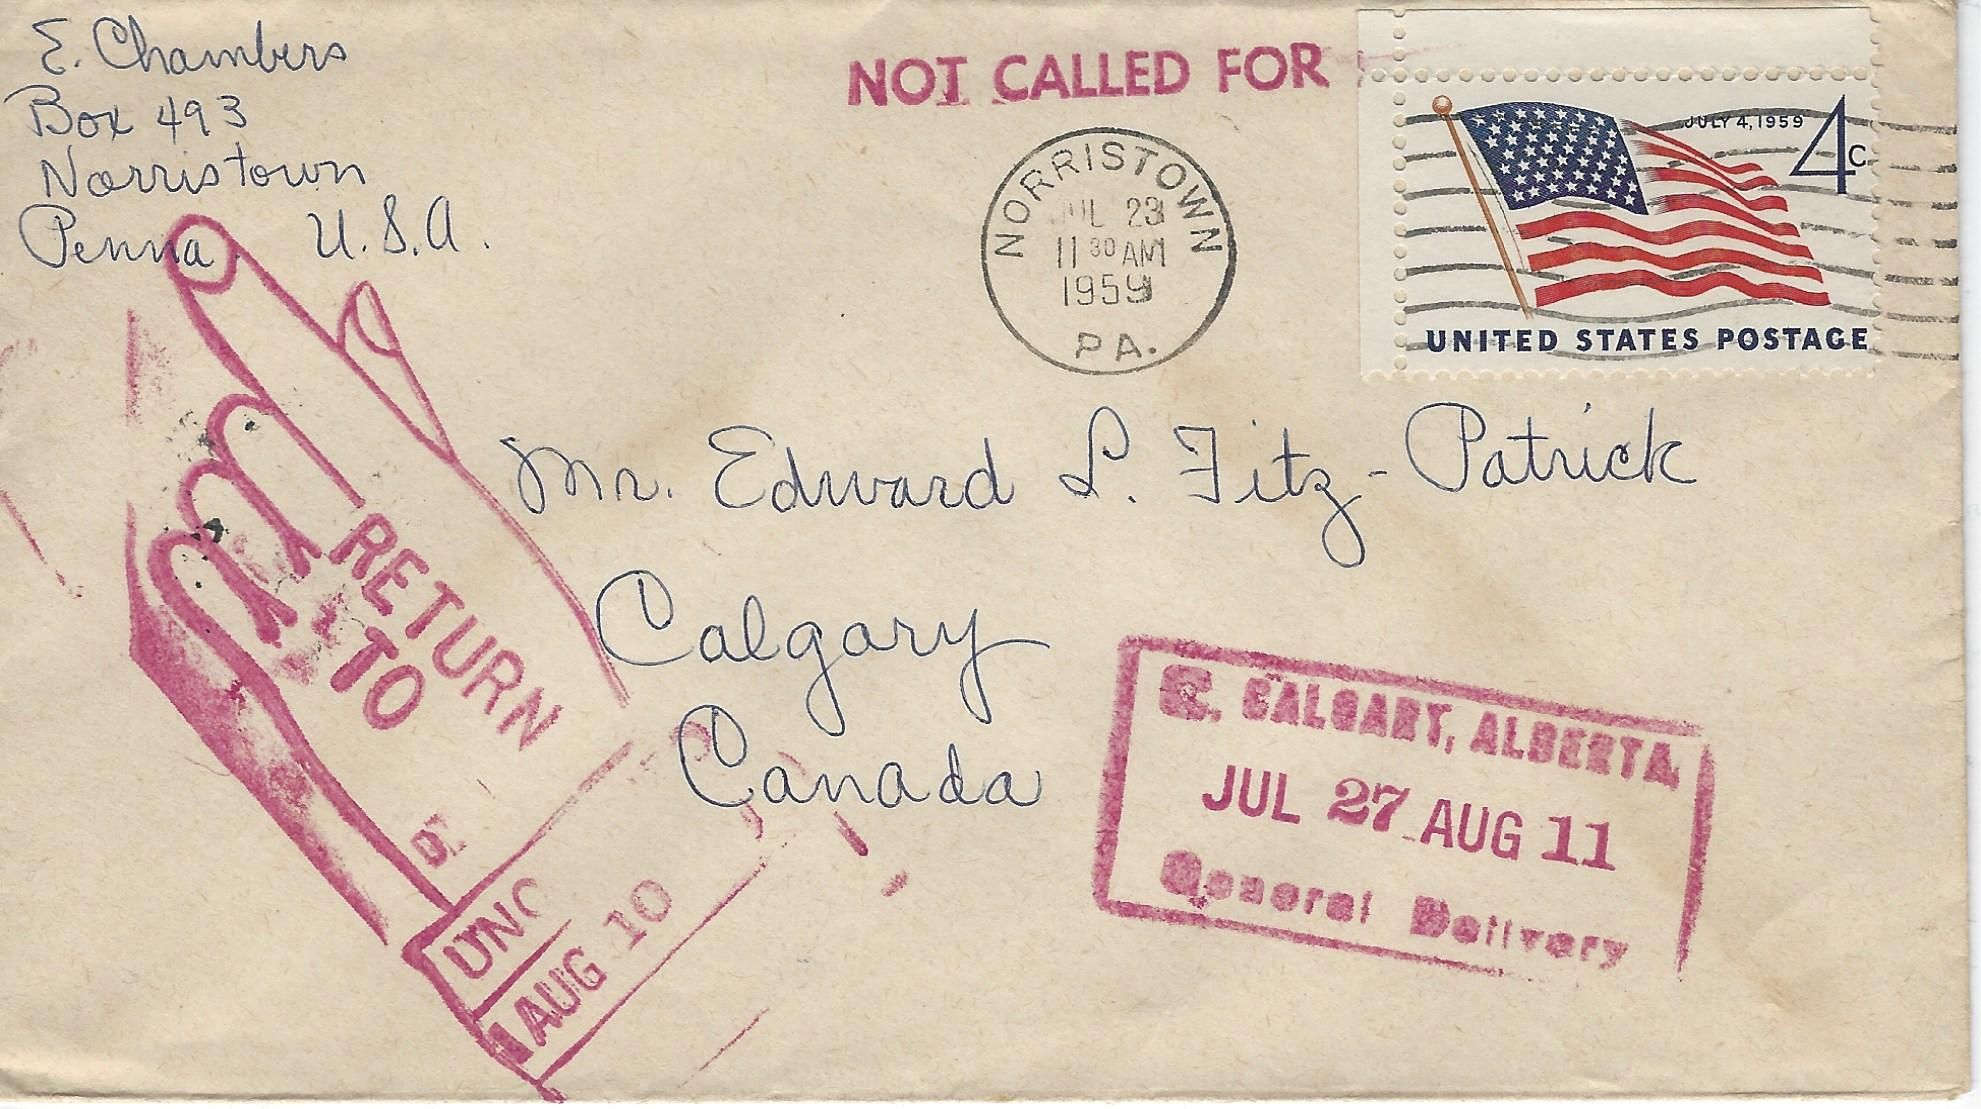 E. Chambers
Box 493
Norristown
Penna. U.S.A.
NOT CALLED FOR
NORRISTOWN
JUL 23
11 30 AM
1959
PA.
JULY 4, 1959
4c
UNITED STATES POSTAGE
Mr. Edward L. Fitz-Patrick
Calgary
Canada
RETURN
TO
AUG 10
CALGARY, ALBERTA
JUL 27 AUG 11
General Delivery